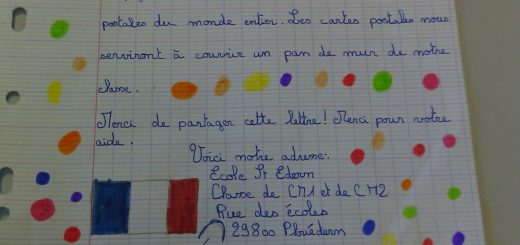 postales du monde entier. Les cartes postales nous
serviront à couvrir un pan de mur de notre
classe.
Merci de partager cette lettre! Merci pour votre
aide.
Voici notre adresse:
Ecole St Edern
Classe de CM1 et de CM2
Rue des écoles
29800 Plouédern